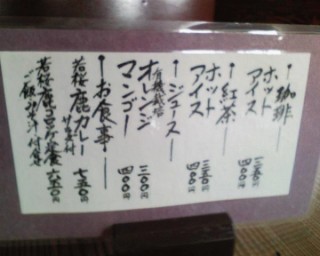 珈琲
ホット 三五〇円
アイス 四〇〇円
紅茶
ホット 三五〇円
アイス 四〇〇円
ジュース
有機栽培
オレンジ 三〇〇円
マンゴー 四〇〇円
お食事
若桜 鹿カレー 七五〇円
若桜 鹿 定食 六五〇円
ご飯 汁 付